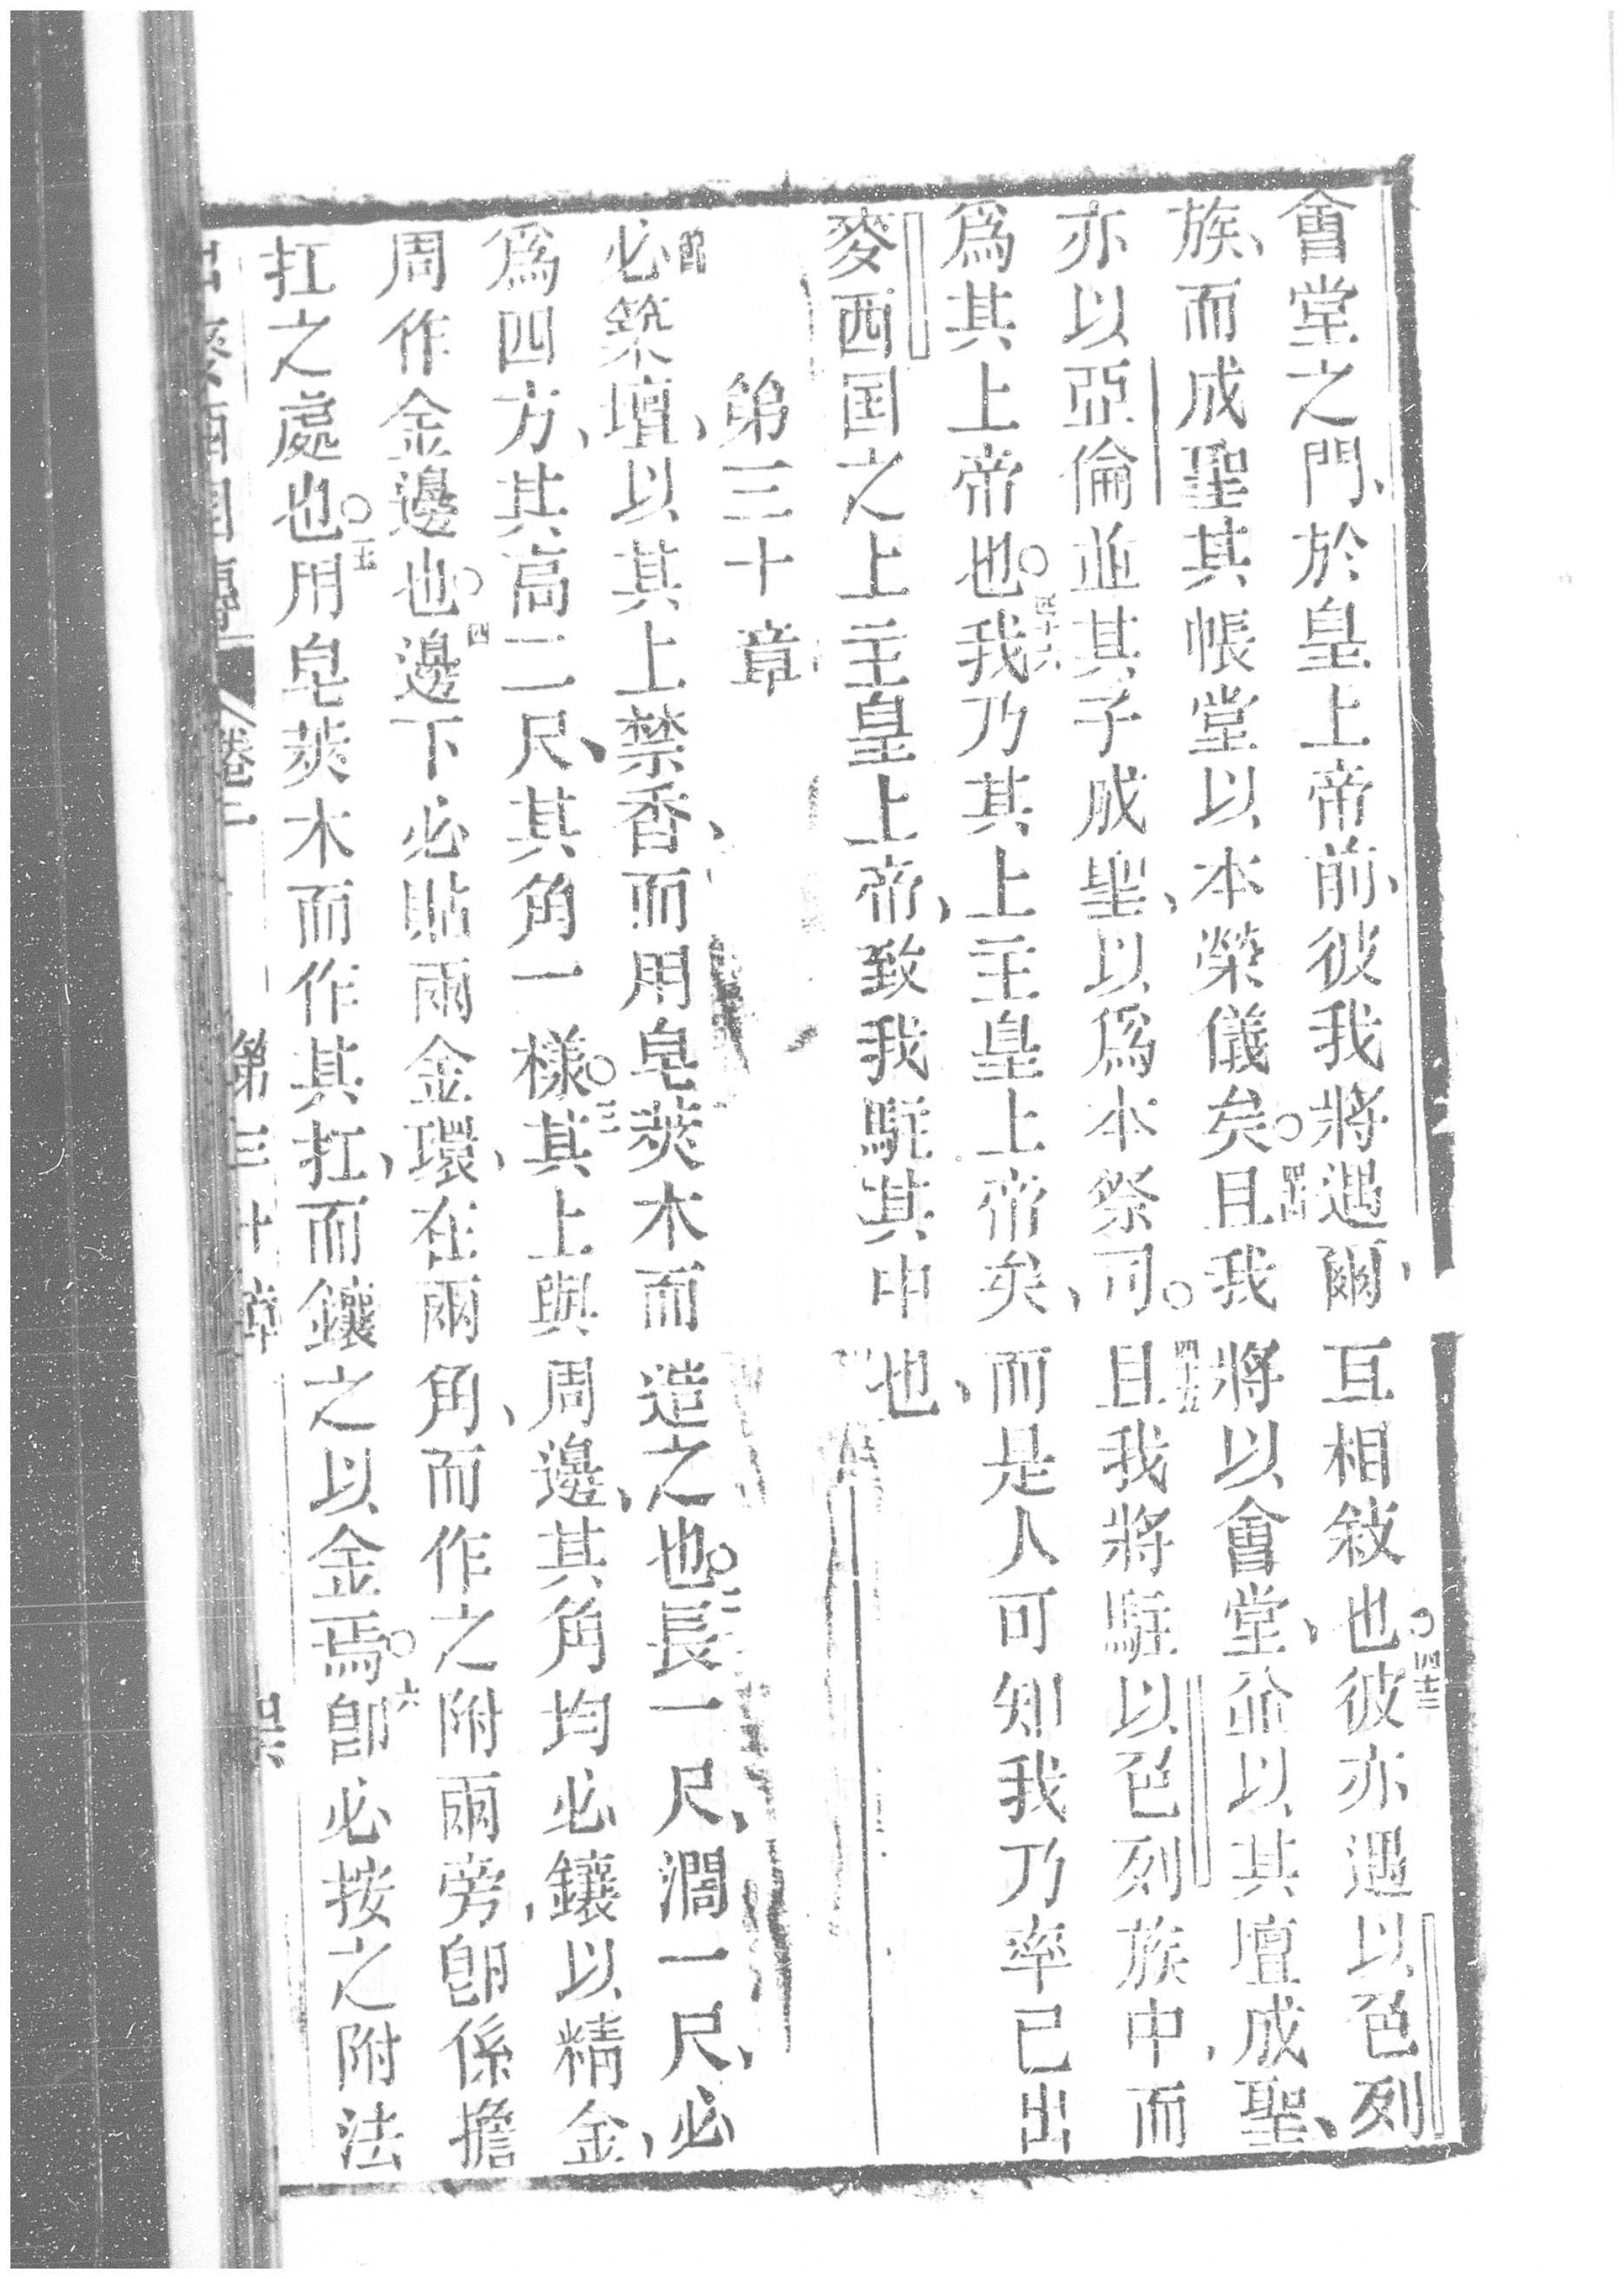 會堂之門、於皇上帝前、彼我將遇爾、互相敍也○四十三彼亦遇以色列
族、而成聖其帳堂以本榮儀矣○四十四且我將以會堂、並以其壇成聖、
亦以亞倫並其子成聖、以爲本祭司○四十五且我將駐以色列族中、而
爲其上帝也○四十六我乃其上主皇上帝矣、而是人可知我乃率已出
麥西国之上主皇上帝、致我駐其中也、
第三十章
必築壇、以其上禁香、而用皂莢木而造之也○二長一尺、濶一尺、必
爲四方、其高二尺、其角一樣○三其上與周邊、其角均必鑲以精金、
周作金邊也○四邊下必貼兩金環、在兩角、而作之附兩旁、卽係擔
扛之處也○五用皂莢木而作其扛、而鑲之以金焉○六卽必按之附法
卷二 第三十章